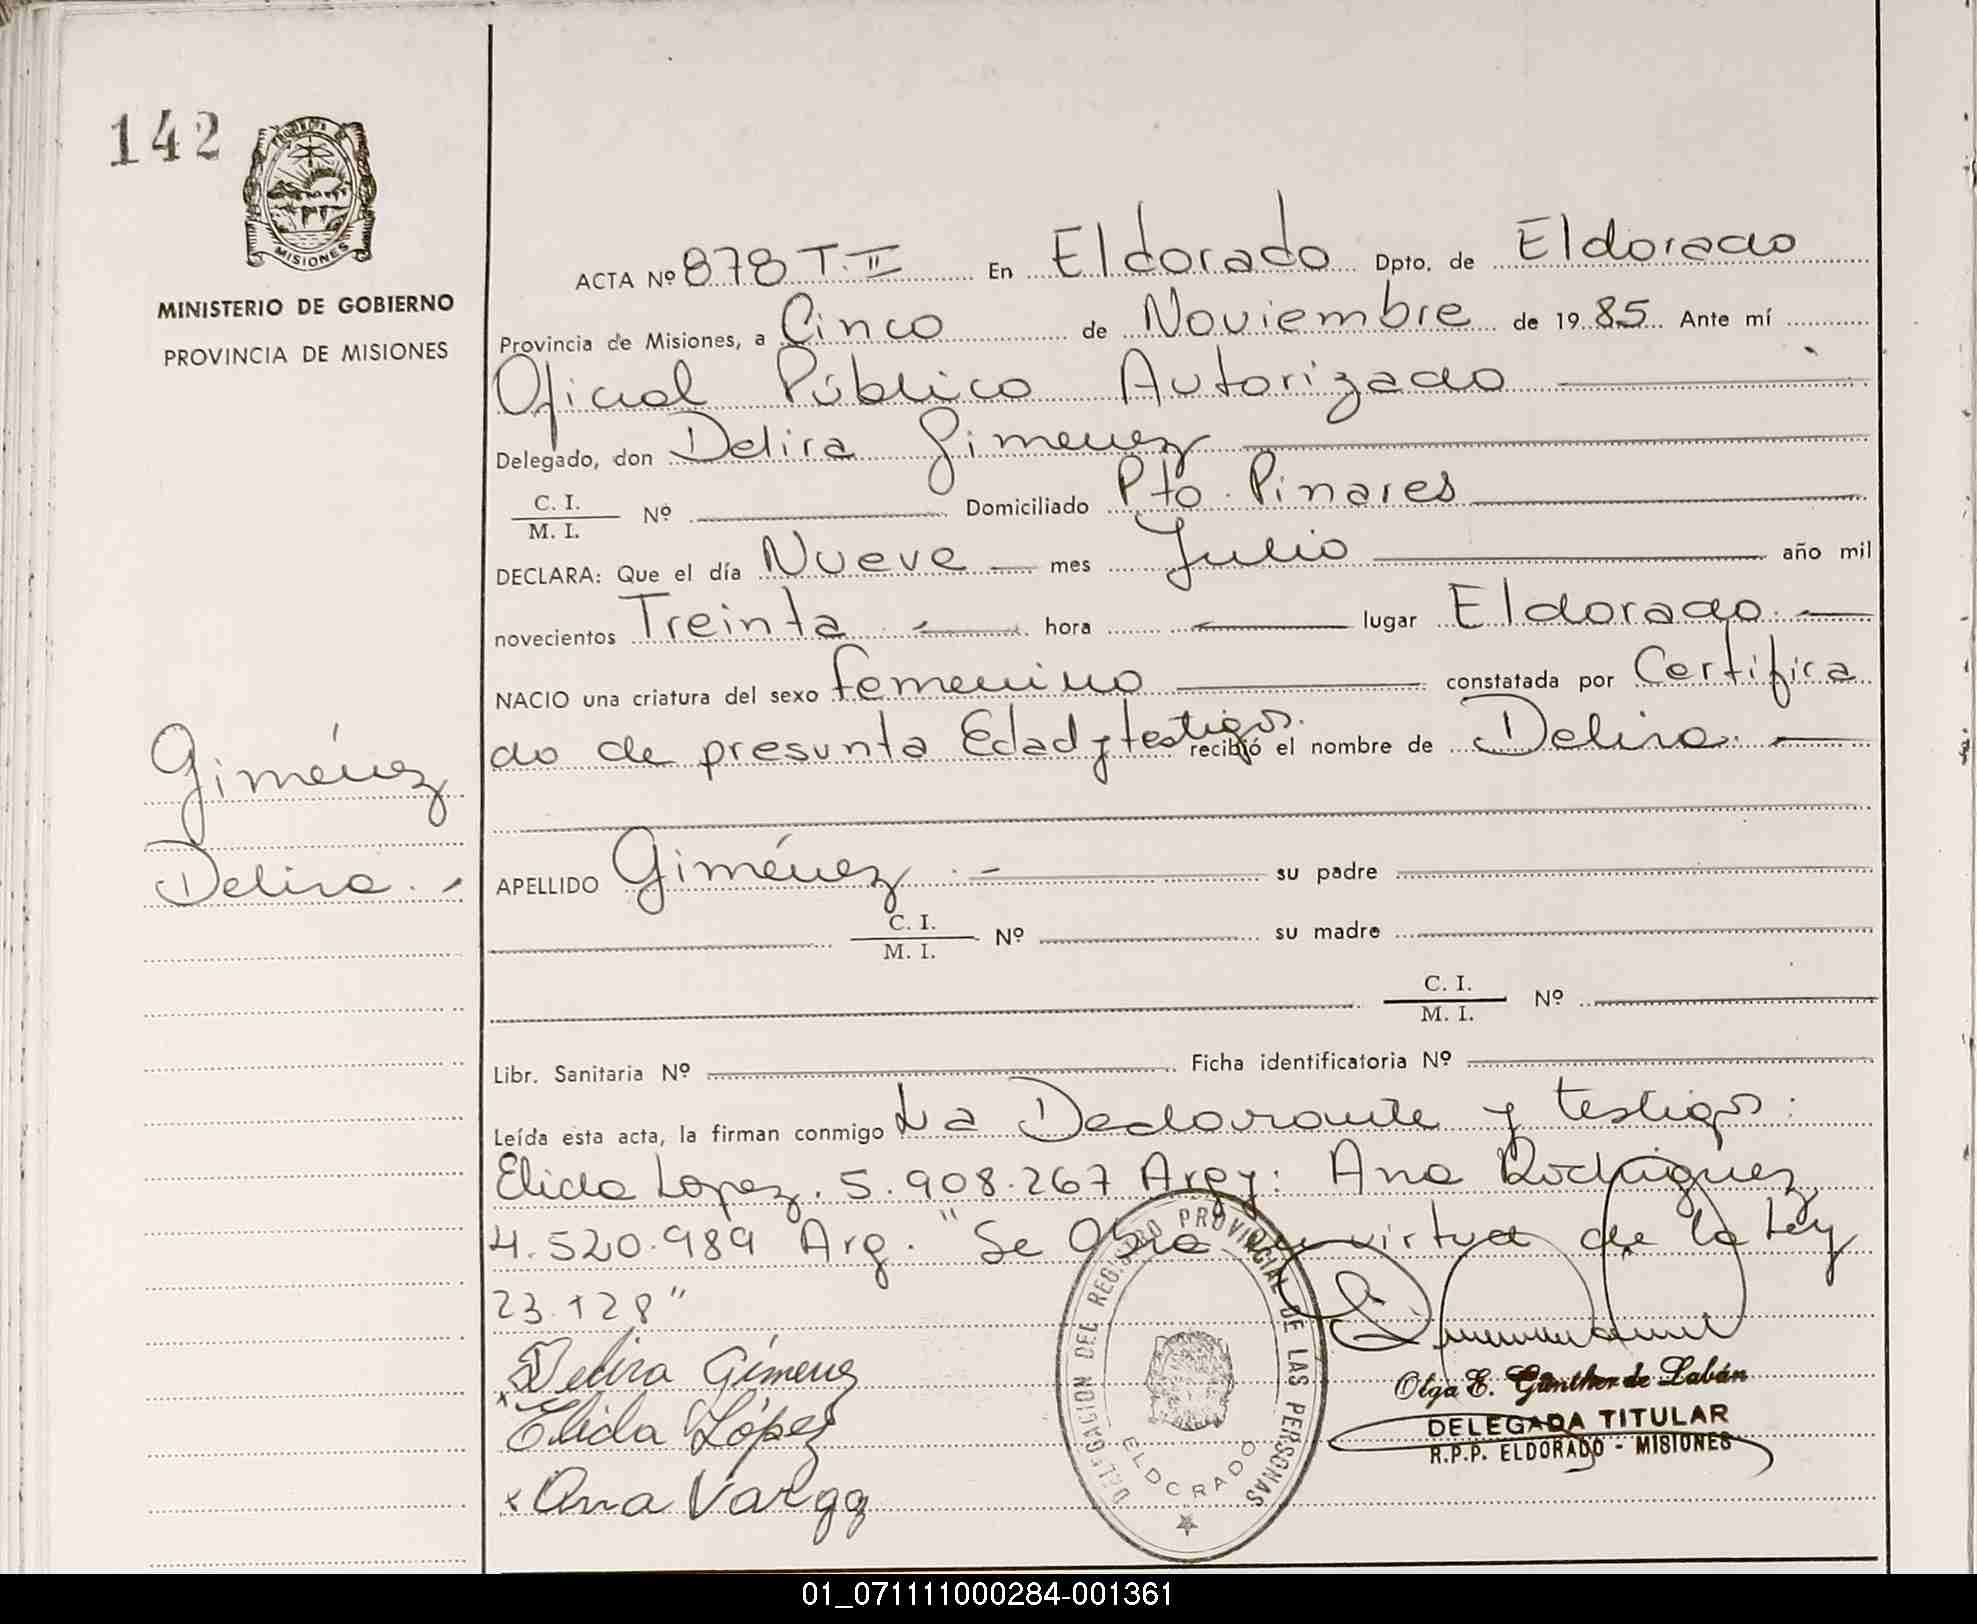 142
PROVINCIA DE
MISIONES
MINISTERIO DE GOBIERNO
PROVINCIA DE MISIONES
Giménez
Delira. -
ACTA Nº 878 T. II En Eldorado Dpto. de Eldorado
Provincia de Misiones, a Cinco de Noviembre de 1985 Ante mí
Oficial Público Autorizado
Delegado, don Delira Gimenez
C. I.
M. I. Nº Domiciliado Pto. Pinares
DECLARA: Que el día Nueve mes Julio año mil
novecientos Treinta hora lugar Eldorado. -
NACIO una criatura del sexo femenino constatada por Certifica
do de presunta Edad y testigos. recibió el nombre de Delira. -
APELLIDO Giménez . - su padre
C. I.
M. I. Nº su madre
C. I.
M. I. Nº
Libr. Sanitaria Nº Ficha identificatoria Nº
Leída esta acta, la firman conmigo La Declarante y testigos:
Elida Lopez. 5.908.267 Arg y: Ana Rodriguez
4.520.989 Arg. "Se Obra en virtud de la Ley
23.128"
Delira Gimenez
x Elida López
x Ana Vargaz
DELEGACION DEL REGISTRO PROVINCIAL DE LAS PERSONAS
ELDORADO
Olga E. Günther de Labán
DELEGADA TITULAR
R.P.P. ELDORADO - MISIONES
01_071111000284-001361